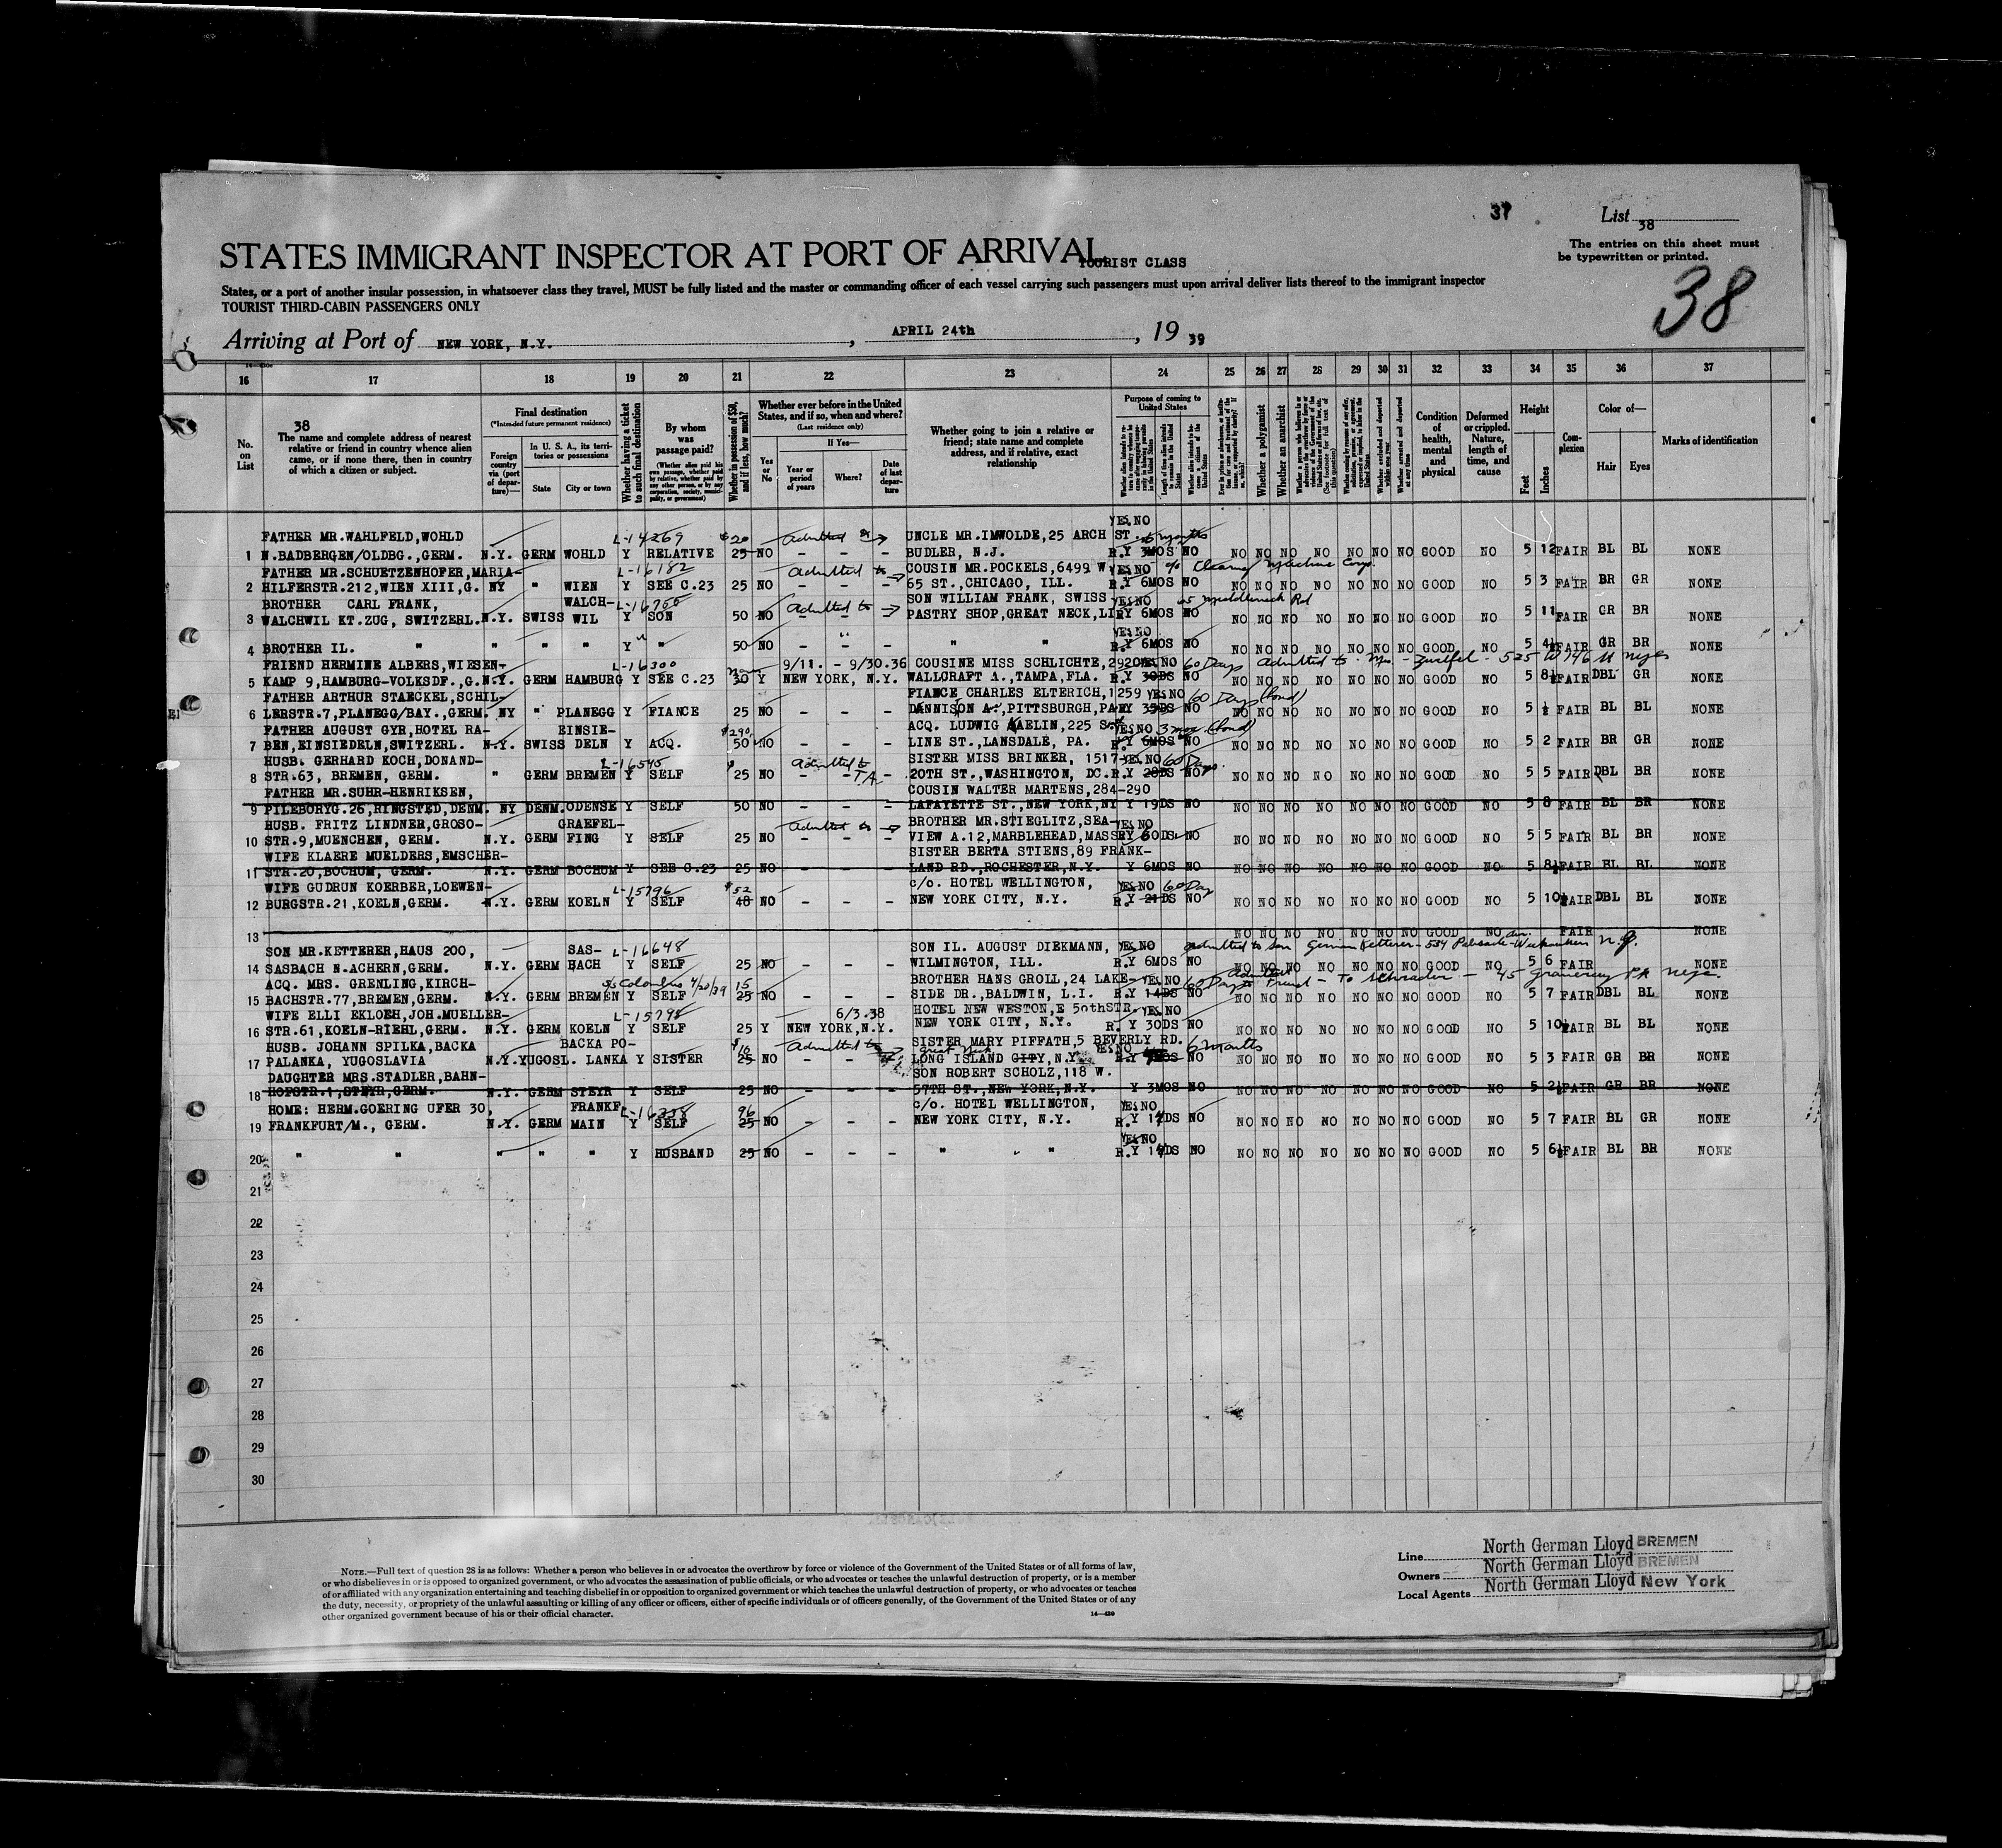 37
List 38
The entries on this sheet must
be typewritten or printed.
38
STATES IMMIGRANT INSPECTOR AT PORT OF ARRIVAL
TOURIST CLASS
States, or a port of another insular possession, in whatsoever class they travel, MUST be fully listed and the master or commanding officer of each vessel carrying such passengers must upon arrival deliver lists thereof to the immigrant inspector
TOURIST THIRD-CABIN PASSENGERS ONLY
Arriving at Port of NEW YORK, N.Y., APRIL 24th, 19 39
16 17 18 19 20 21 22 23 24 25 26 27 28 29 30 31 32 33 34 35 36 37
No. on List
38
The name and complete address of nearest
relative or friend in country whence alien
came, or if none there, then in country
of which a citizen or subject.
Final destination
(*Intended future permanent residence)
Foreign country via (port of departure)—
In U. S. A., its territories or possessions
State
City or town
Whether having a ticket to such final destination
By whom was passage paid?
(Whether alien paid his own passage, whether paid by relative, whether paid by any other person, or by any corporation, society, municipality, or government)
Whether in possession of $50, and if less, how much?
Whether ever before in the United
States, and if so, when and where?
(Last residence only)
Yes or No
If Yes—
Year or period of years
Where?
Date of last departure
Whether going to join a relative or
friend; state name and complete
address, and if relative, exact
relationship
Purpose of coming to United States
Whether a polygamist
Whether an anarchist
Condition of health, mental and physical
Deformed or crippled. Nature, length of time, and cause
Height
Feet
Inches
Complexion
Color of—
Hair
Eyes
Marks of identification
YES NO
FATHER MR.WAHLFELD,WOHLD L-14269 $20 admitted to UNCLE MR.IMWOLDE,25 ARCH ST. 6 months
1 N.BADBERGEN/OLDBG.,GERM. N.Y. GERM WOHLD Y RELATIVE 25 NO - - - BUDLER, N.J. R.Y 3MOS NO NO NO NO NO NO NO NO GOOD NO 5 12 FAIR BL BL NONE
FATHER MR.SCHUETZENHOFER,MARIA- L-16182 admitted to COUSIN MR.POCKELS,6499 W. c/o Clearing Machine Corp.
2 HILFERSTR.212,WIEN XIII,G. NY " WIEN Y SEE C.23 25 NO - - - 65 ST.,CHICAGO, ILL. R.Y 6MOS NO NO NO NO NO NO NO NO GOOD NO 5 3 FAIR BR GR NONE
BROTHER CARL FRANK, WALCH- admitted to SON WILLIAM FRANK, SWISS YES NO Middleneck Rd
3 WALCHWIL KT.ZUG, SWITZERL. N.Y. SWISS WIL Y SON 50 NO - - - PASTRY SHOP,GREAT NECK,LI RY 6MOS NO NO NO NO NO NO NO NO GOOD NO 5 11 FAIR GR BR NONE
YES NO
4 BROTHER IL. " " " " Y " 50 NO - " - " " R.Y 6MOS NO NO NO NO NO NO NO NO GOOD NO 5 4½ FAIR GR BR NONE
FRIEND HERMINE ALBERS,WIESEN- L-16300 9/11. - 9/30.36 COUSINE MISS SCHLICHTE,2920 YES NO 60 Days admitted to
5 KAMP 9,HAMBURG-VOLKSDF.,G. N.Y. GERM HAMBURG Y SEE C.23 30 Y NEW YORK, N.Y. WALLCRAFT A.,TAMPA,FLA. R.Y 30DS NO NO NO NO NO NO NO NO GOOD NO 5 8½ FAIR DBL GR NONE
FATHER ARTHUR STAECKEL,SCHIL- FIANCE CHARLES ELTERICH,1259 YES NO 60 Days (bond)
6 LERSTR.7,PLANEGG/BAY.,GERM. NY " PLANEGG Y FIANCE 25 NO - - - DENNISON A.,PITTSBURGH,PA RY 35DS NO NO NO NO NO NO NO NO GOOD NO 5 ½ FAIR BL BL NONE
FATHER AUGUST GYR,HOTEL RA- EINSIE- $290 ACQ. LUDWIG KAELIN,225 YES NO 3 mos (bond)
7 BEN,EINSIEDELN,SWITZERL. N.Y. SWISS DELN Y ACQ. 50 NO - - - LINE ST.,LANSDALE, PA. R.Y 6MOS NO NO NO NO NO NO NO NO GOOD NO 5 2 FAIR BR GR NONE
HUSB. GERHARD KOCH,DONAND- L-16545 admitted to SISTER MISS BRINKER, 1517 YES NO 60 Days.
8 STR.63, BREMEN, GERM. " GERM BREMEN Y SELF 25 NO - - T.A. - 20TH ST.,WASHINGTON, DC. R.Y 28DS NO NO NO NO NO NO NO NO GOOD NO 5 5 FAIR DBL BR NONE
FATHER MR.SUHR-HENRIKSEN, COUSIN WALTER MARTENS,284-290
9 PILEBORYG.26,RINGSTED,DENM. NY DENM.ODENSE Y SELF 50 NO - - - LAFAYETTE ST.,NEW YORK,NY Y 19DS NO NO NO NO NO NO NO NO GOOD NO 5 8 FAIR BL BR NONE
HUSB. FRITZ LINDNER,GROSO- GRAEFEL- admitted to BROTHER MR.STIEGLITZ,SEA- YES NO
10 STR.9,MUENCHEN, GERM. N.Y. GERM FING Y SELF 25 NO - - - VIEW A.12,MARBLEHEAD,MASS RY 60DS NO NO NO NO NO NO NO NO GOOD NO 5 5 FAIR BL BR NONE
WIFE KLAERE MUELDERS,EMSCHER- SISTER BERTA STIENS,89 FRANK-
11 STR.20,BOCHUM, GERM. N.Y. GERM BOCHUM Y SEE C.23 25 NO - - - LAND RD.,ROCHESTER,N.Y. Y 6MOS NO NO NO NO NO NO NO NO GOOD NO 5 8½ FAIR BL BL NONE
WIFE GUDRUN KOERBER,LOEWEN- L-15796 $52 c/o. HOTEL WELLINGTON, YES NO 60 Day
12 BURGSTR.21,KOELN,GERM. N.Y. GERM KOELN Y SELF 48 NO - - - NEW YORK CITY, N.Y. R.Y 21DS NO NO NO NO NO NO NO NO GOOD NO 5 10½ FAIR DBL BL NONE
13 NO NO NO NO NO NO NO GOOD NO FAIR NONE
SON MR.KETTERER,HAUS 200, SAS- L-16648 SON IL. AUGUST DIEKMANN, YES NO admitted to son German Ketterer - 534 Palisade - Weehawken N.J.
14 SASBACH N.ACHERN,GERM. N.Y. GERM BACH Y SELF 25 NO - - - WILMINGTON, ILL. R.Y 6MOS NO NO NO NO NO NO NO NO GOOD NO 5 6 FAIR NONE
ACQ. MRS. GRENLING,KIRCH- S/S Columbus 4/20/39 15 BROTHER HANS GROLL,24 LAKE- YES NO 60 Days admitted to Friend - To Schrader - 45 Gramercy Pk NYC.
15 BACHSTR.77,BREMEN,GERM. N.Y. GERM BREMEN Y SELF 25 NO - - - SIDE DR.,BALDWIN, L.I. R.Y 14DS NO NO NO NO NO NO NO NO GOOD NO 5 7 FAIR DBL BL NONE
WIFE ELLI EKLOEH,JOH.MUELLER- L-15798 6/3.38 HOTEL NEW WESTON,E 50thSTR. YES NO
16 STR.61,KOELN-RIEHL,GERM. N.Y. GERM KOELN Y SELF 25 Y NEW YORK,N.Y. NEW YORK CITY, N.Y. R.Y 30DS NO NO NO NO NO NO NO NO GOOD NO 5 10½ FAIR BL BL NONE
HUSB. JOHANN SPILKA,BACKA BACKA PO- $10 admitted to SISTER MARY PIFFATH,5 BEVERLY RD. YES NO 6 months
Great Neck
17 PALANKA, YUGOSLAVIA N.Y. YUGOSL. LANKA Y SISTER 25 NO - - LONG ISLAND CITY,N.Y. R.Y NO NO NO NO NO NO NO NO GOOD NO 5 3 FAIR GR BR NONE
DAUGHTER MRS.STADLER,BAHN- SON ROBERT SCHOLZ,118 W.
18 HOFSTR.1,STEYR,GERM. N.Y. GERM STEYR Y SELF 25 NO - - - 57TH ST.,NEW YORK,N.Y. Y 3MOS NO NO NO NO NO NO NO NO GOOD NO 5 2½ FAIR GR BR NONE
HOME: HERM.GOERING UFER 30, FRANKF. 96 c/o. HOTEL WELLINGTON, YES NO
19 FRANKFURT/M., GERM. N.Y. GERM MAIN Y SELF 25 NO - - - NEW YORK CITY, N.Y. R.Y 14DS NO NO NO NO NO NO NO NO GOOD NO 5 7 FAIR BL GR NONE
YES NO
20 " " " " " Y HUSBAND 25 NO - - - " " " R.Y 14DS NO NO NO NO NO NO NO NO GOOD NO 5 6½ FAIR BL BR NONE
21
22
23
24
25
26
27
28
29
30
NOTE.—Full text of question 28 is as follows: Whether a person who believes in or advocates the overthrow by force or violence of the Government of the United States or of all forms of law,
or who disbelieves in or is opposed to organized government, or who advocates the assassination of public officials, or who advocates or teaches the unlawful destruction of property, or is a member
of or affiliated with any organization entertaining and teaching disbelief in or opposition to organized government or which teaches the unlawful destruction of property, or who advocates or teaches
the duty, necessity, or propriety of the unlawful assaulting or killing of any officer or officers, either of specific individuals or of officers generally, of the Government of the United States or of any
other organized government because of his or their official character.
14—430
Line North German Lloyd BREMEN
Owners North German Lloyd BREMEN
Local Agents North German Lloyd New York